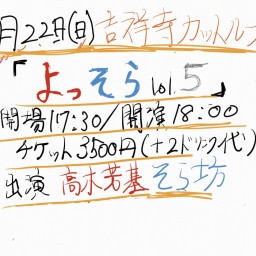 月22日(日)吉祥寺カットルー
「よっそらvol.5」
開場17:30/開演18:00
チケット3500円(+2ドリンク代)
出演 高木芳基 そら坊